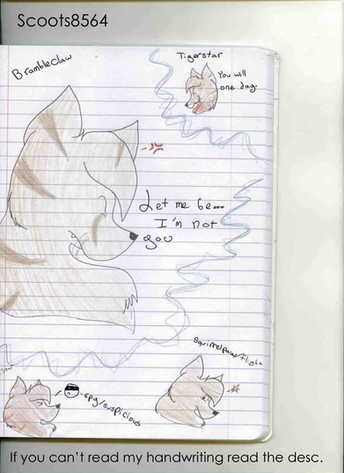 Scoots8564
Brambleclaw
Tigerstar
You will
one day.
Let me be...
I'm not
you
Squirrelpaw/flight
-spy/suspicious
If you can't read my handwriting read the desc.